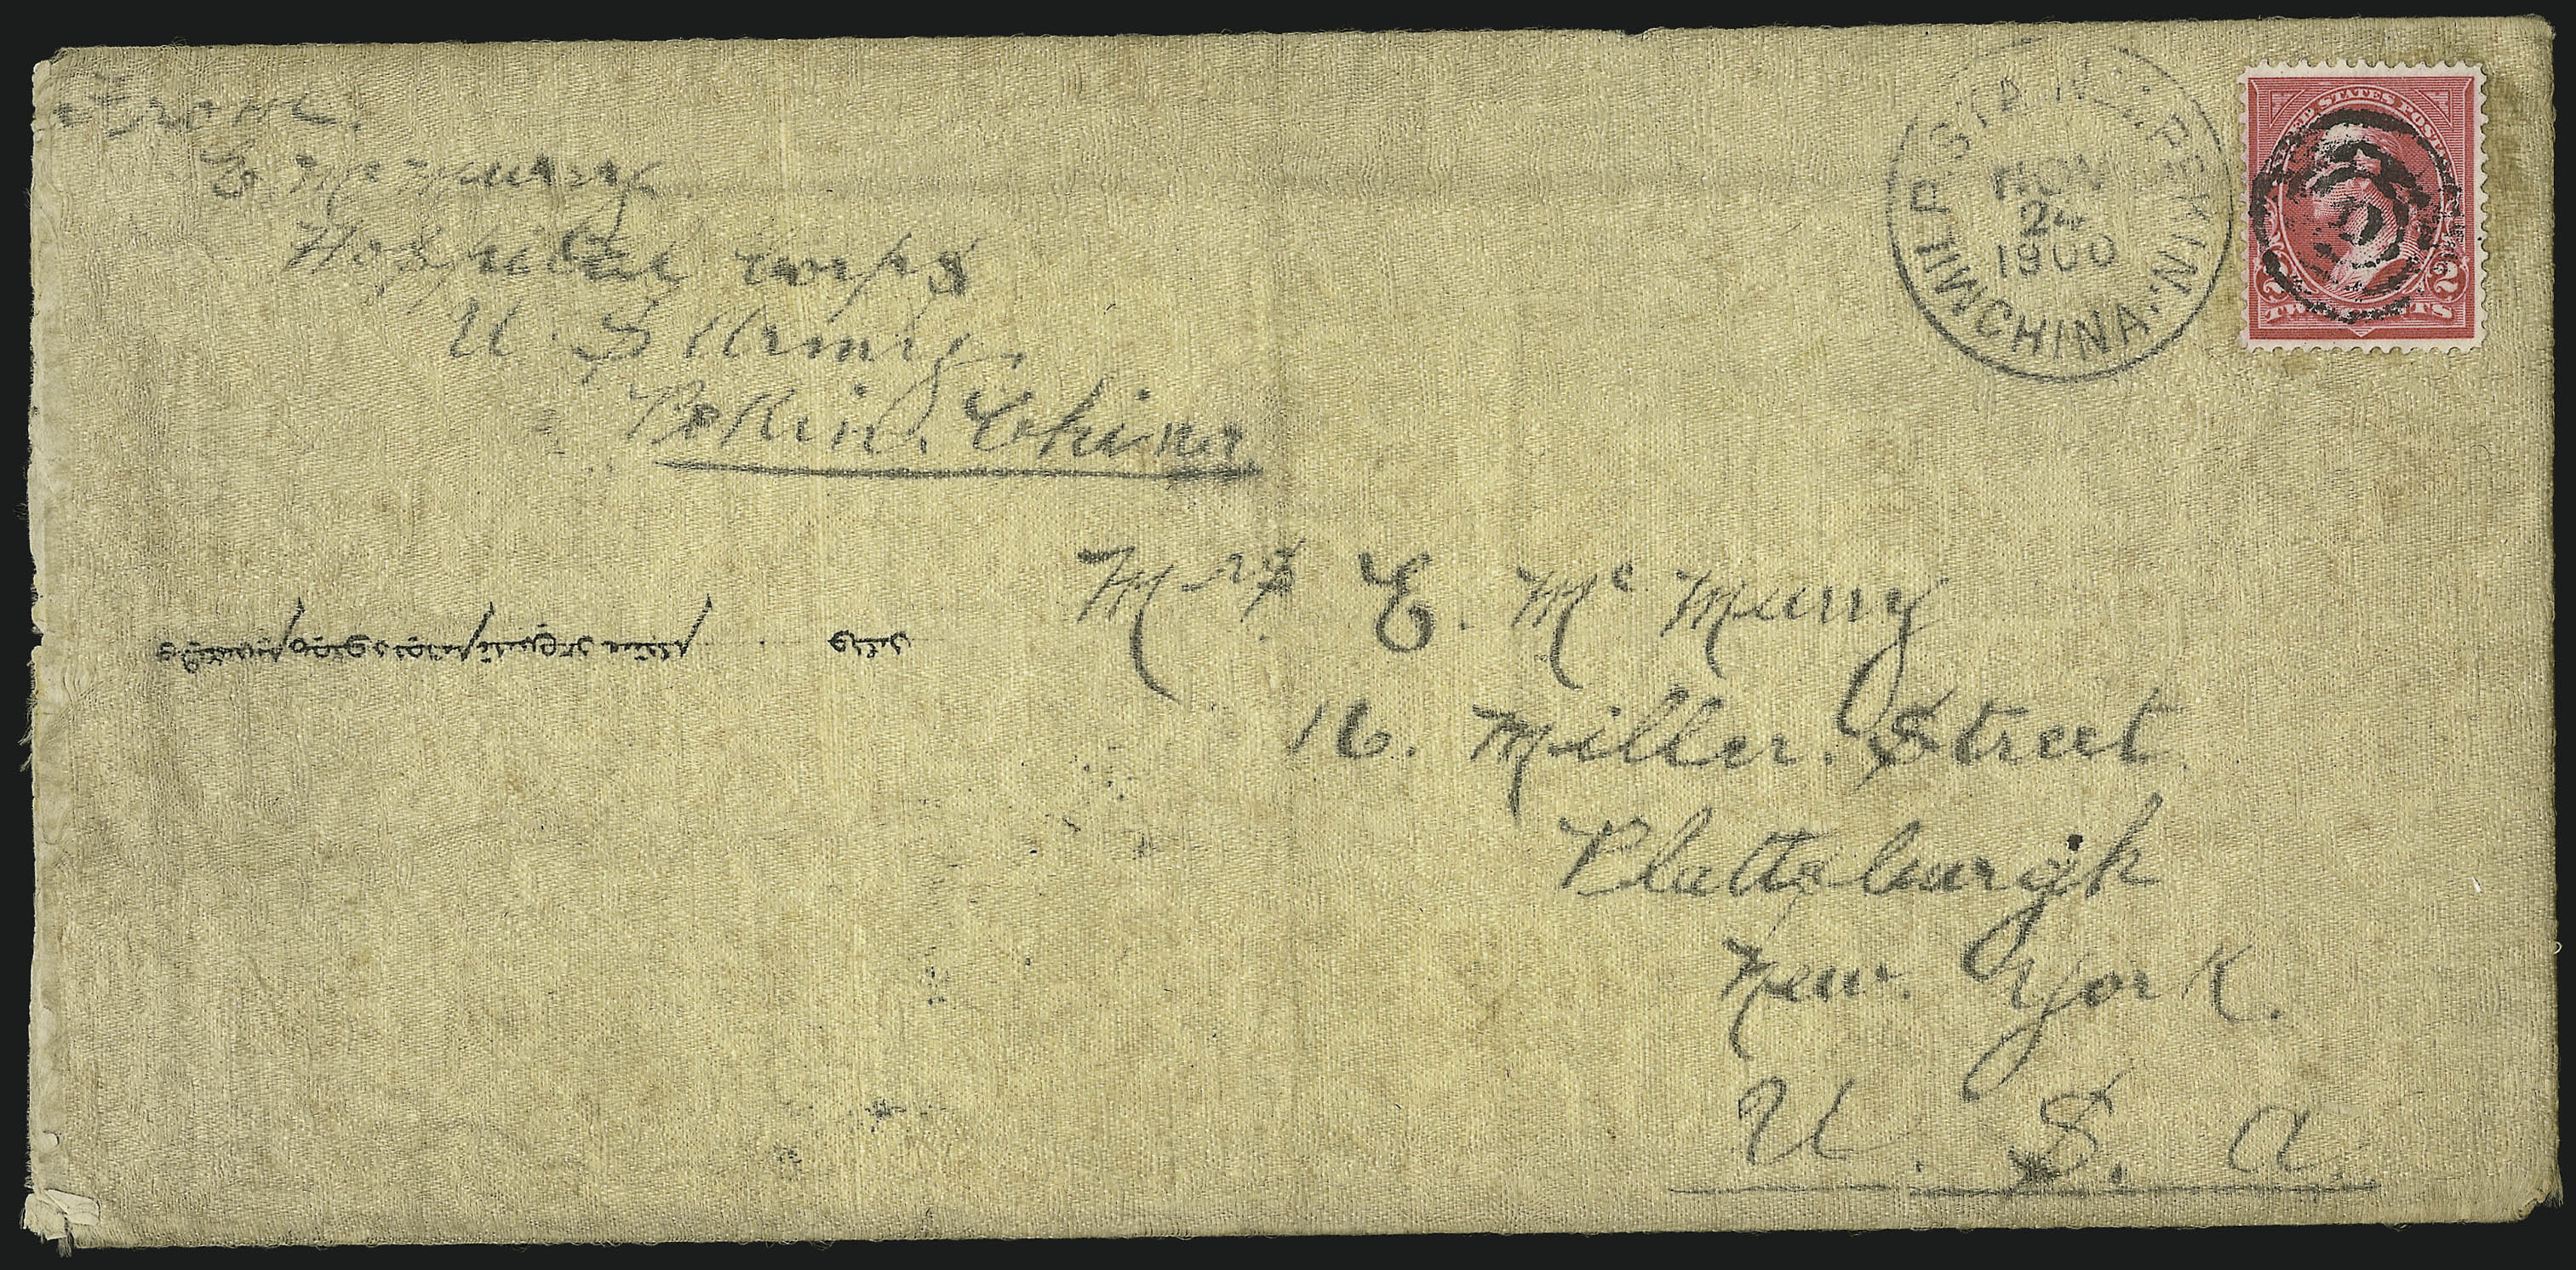 From.
E. Mc Murry
Hospital Corps
U. S. Army.
Pekin. China
MIL. P. STA. No. 1 PEKIN.
NOV
24
1900
CHINA.
UNITED STATES POSTAGE
2 2
TWO CENTS
D
Mrs E. Mc Murry
16. Miller. Street
Plattsburgh
New. York.
U. S. A.